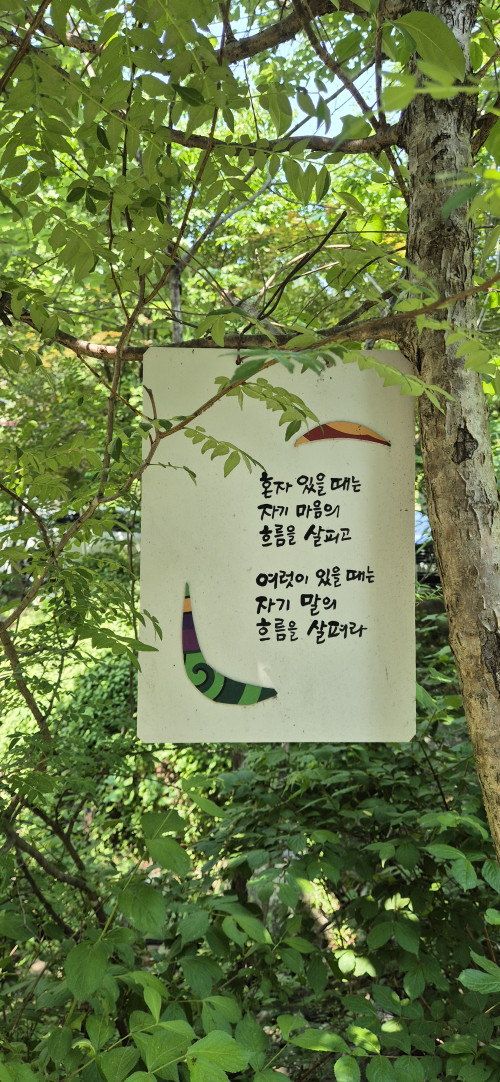 혼자 있을 때는
자기 마음의
흐름을 살피고
여럿이 있을 때는
자기 말의
흐름을 살펴라